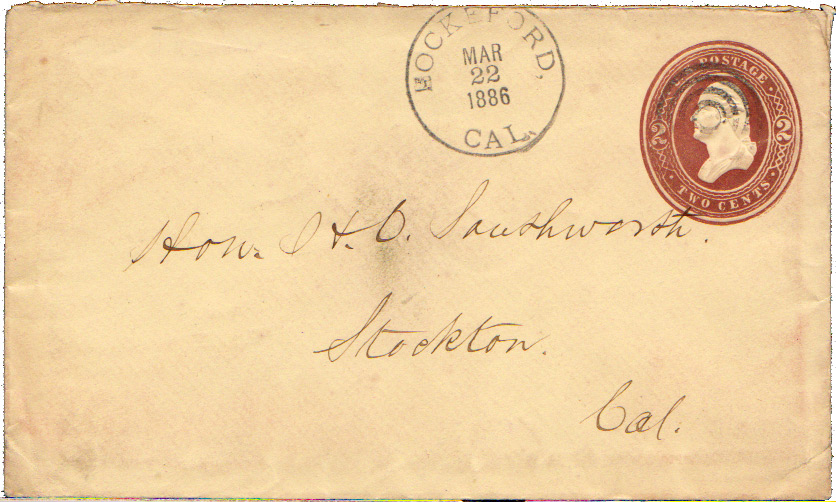 LOCKEFORD,
MAR
22
1886
CAL.
U.S. POSTAGE
2 2
TWO CENTS
Hon. S. H. O. Southworth.
Stockton.
Cal.